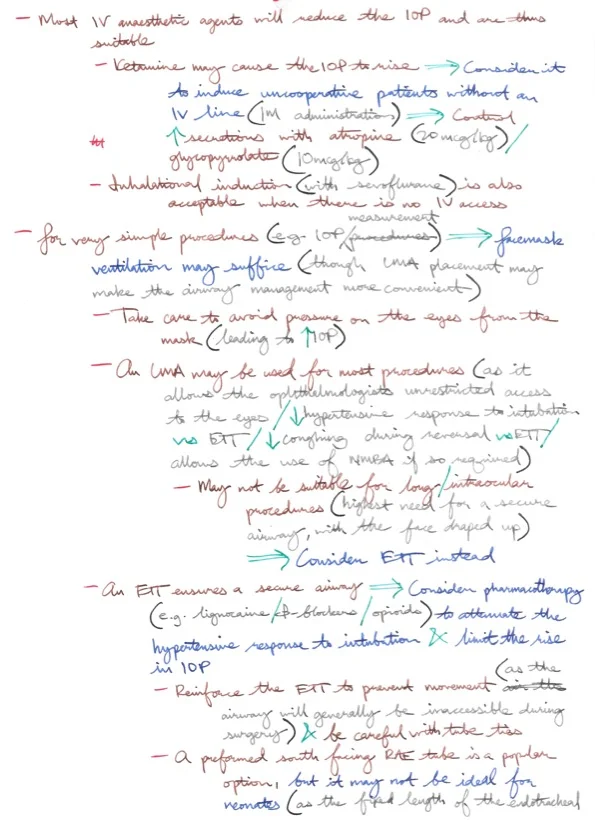 — Most IV anaesthetic agents will reduce the IOP and are thus
suitable
— Ketamine may cause the IOP to rise ⇒ Consider it
to induce uncooperative patients without an
IV line (IM administration) ⇒ Control
↑ secretions with atropine (20mcg/kg)/
glycopyrrolate (10mcg/kg)
— Inhalational induction (with sevoflurane) is also
acceptable when there is no IV access
measurement
— For very simple procedures (e.g. IOP/procedures) ⇒ facemask
ventilation may suffice (though LMA placement may
make the airway management more convenient)
— Take care to avoid pressure on the eyes from the
mask (leading to ↑IOP)
— An LMA may be used for most procedures (as it
allows the ophthalmologists unrestricted access
to the eyes/↓hypertensive response to intubation
vs ETT/↓coughing during reversal vs ETT/
allows the use of NMBA if so required)
— May not be suitable for long/intraocular
procedures (highest need for a secure
airway, with the face draped up)
⇒ Consider ETT instead
— An ETT ensures a secure airway ⇒ Consider pharmacotherapy
(e.g. lignocaine/β-blockers/opioids) to attenuate the
hypertensive response to intubation & limit the rise
in IOP
(as the
— Reinforce the ETT to prevent movement
airway will generally be inaccessible during
surgery) & be careful with tube ties
— A preformed south facing RAE tube is a popular
option, but it may not be ideal for
neonates (as the fixed length of the endotracheal